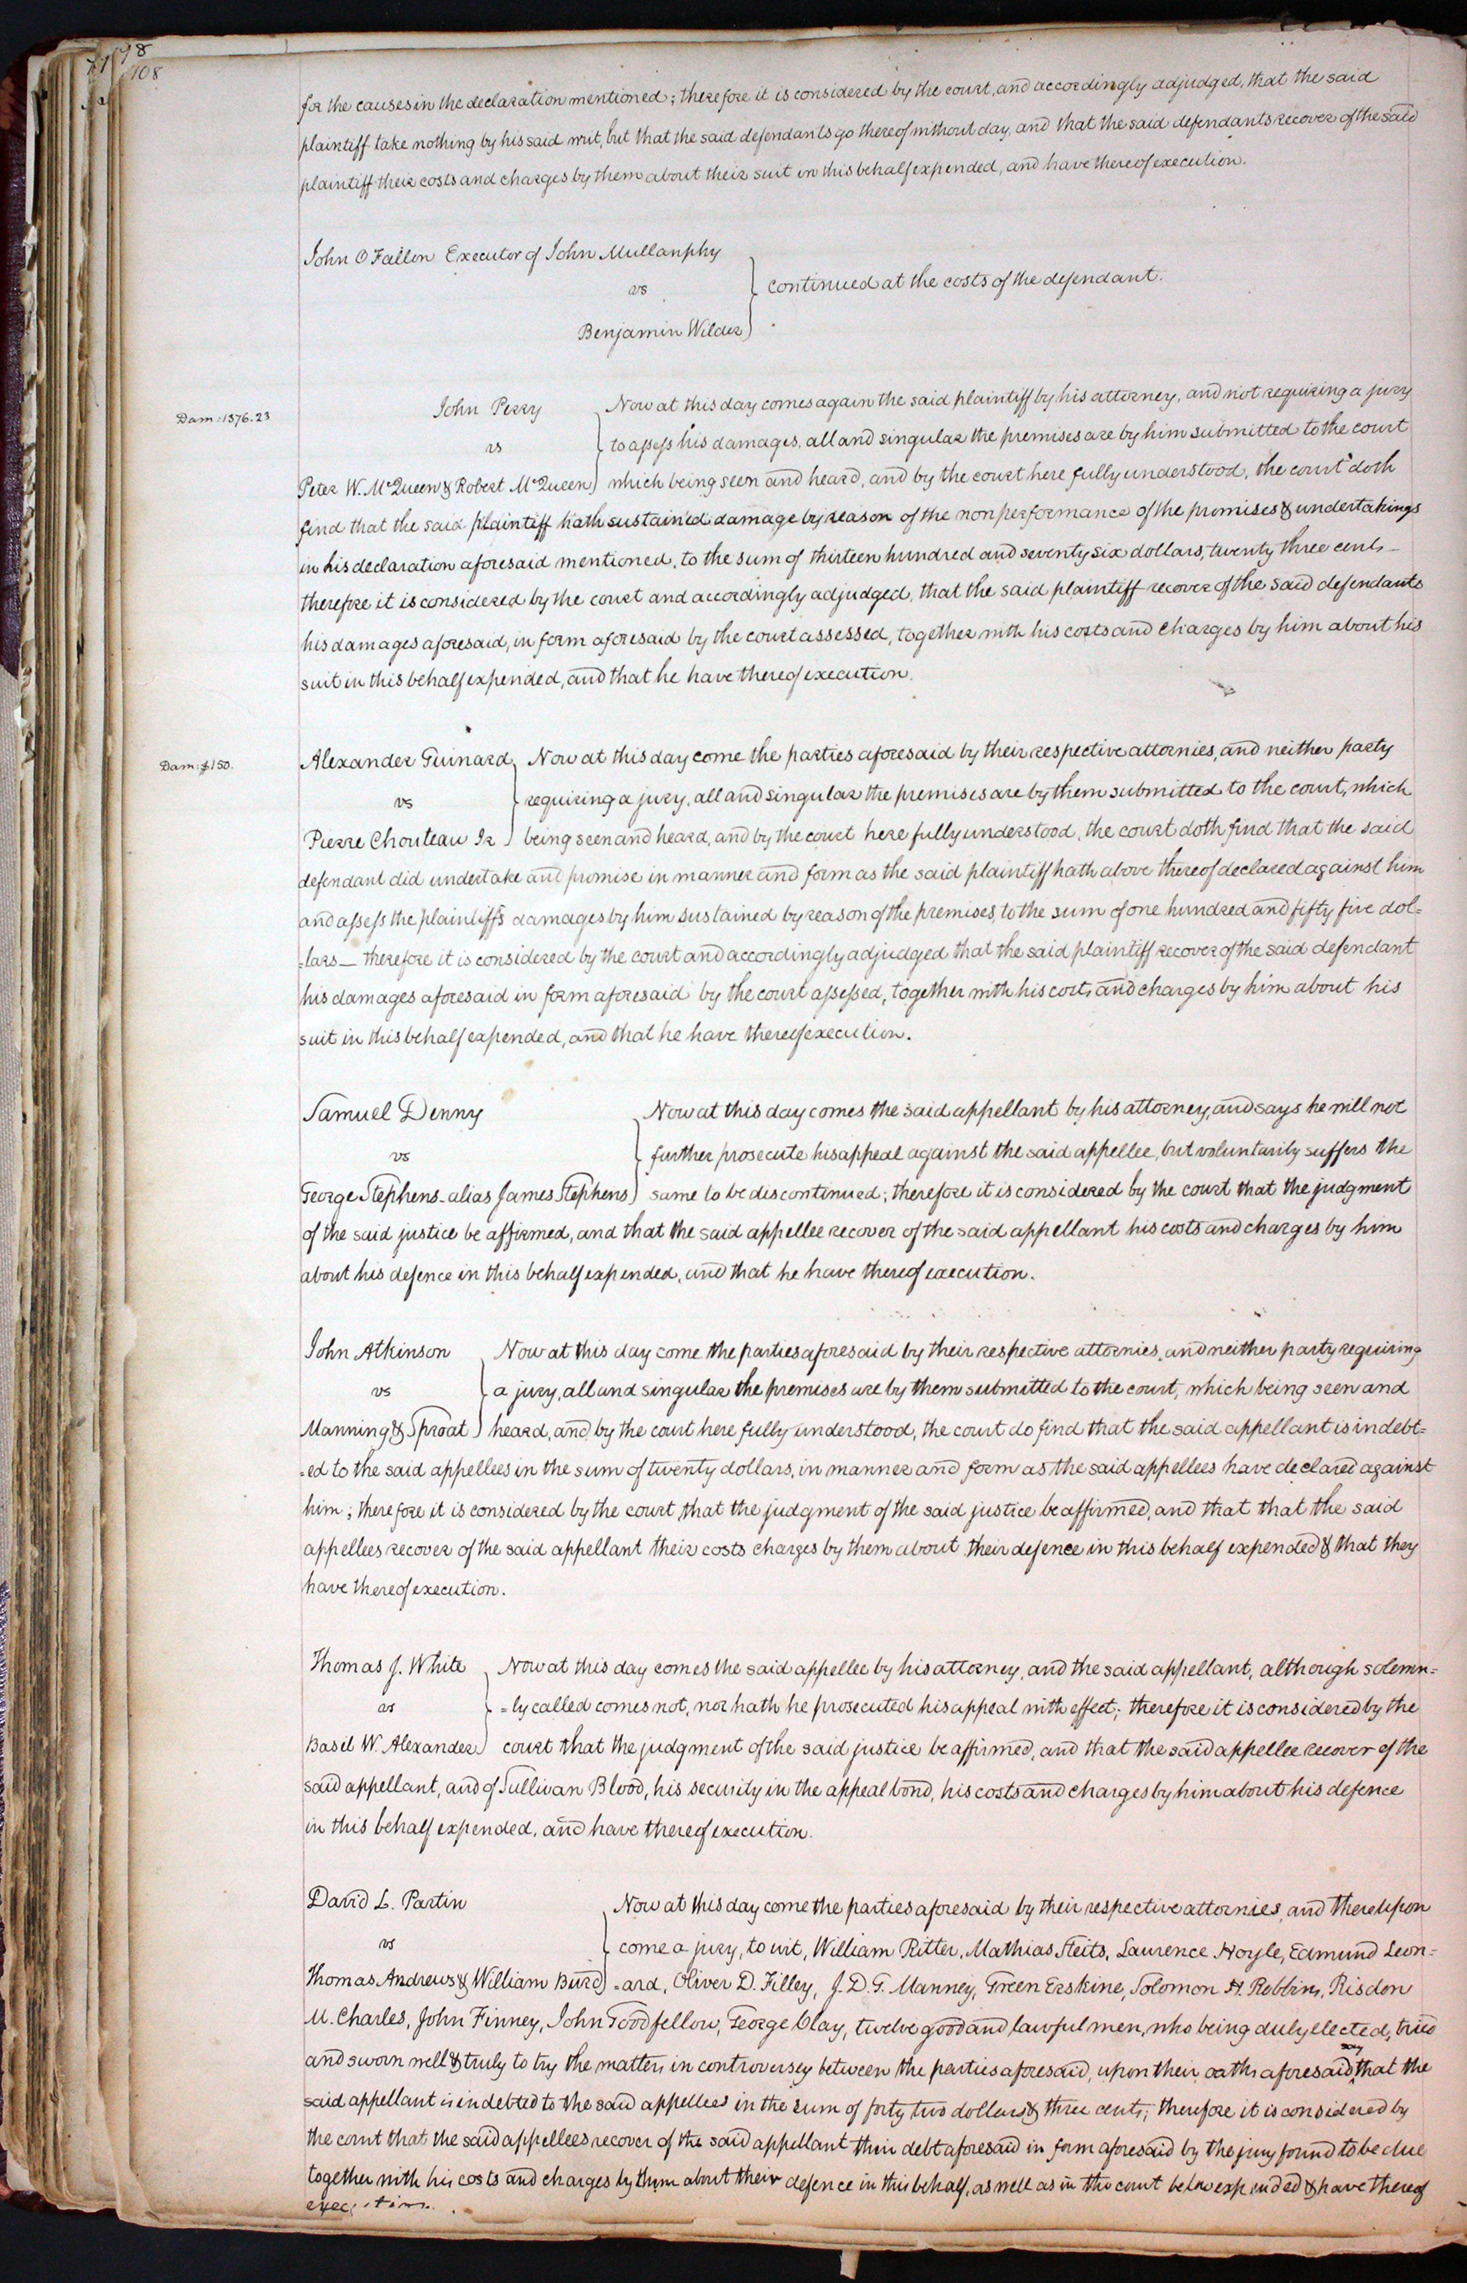 98
71 108
for the causes in the declaration mentioned; therefore it is considered by the court, and accordingly adjudged, that the said
plaintiff take nothing by his said writ, but that the said defendants go thereof without day, and that the said defendants recover of the said
plaintiff their costs and charges by them about their suit in this behalf expended, and have thereof execution.
John O Fallon Executor of John Mullanphy
vs
continued at the costs of the defendant.
Benjamin Wilder
Dam: 1376.23
John Perry
Now at this day comes again the said plaintiff by his attorney, and not requiring a jury
vs
to assess his damages, all and singular the premises are by him submitted to the court
Peter W. McQueen & Robert McQueen
which being seen and heard, and by the court here fully understood, the court doth
find that the said plaintiff hath sustained damage by reason of the nonperformance of the promises & undertakings
in his declaration aforesaid mentioned, to the sum of thirteen hundred and seventy six dollars, twenty three cents_
therefore it is considered by the court and accordingly adjudged, that the said plaintiff recover of the said defendants
his damages aforesaid, in form aforesaid by the court assessed, together with his costs and charges by him about his
suit in this behalf expended, and that he have thereof execution.
Dam: $150.
Alexander Guinard
Now at this day come the parties aforesaid by their respective attornies, and neither party
vs
requiring a jury, all and singular the premises are by them submitted to the court, which
Pierre Chouteau Jr
being seen and heard, and by the court here fully understood, the court doth find that the said
defendant did undertake and promise in manner and form as the said plaintiff hath above thereof declared against him
and assess the plaintiff's damages by him sustained by reason of the premises, to the sum of one hundred and fifty five dol=
=lars_ therefore it is considered by the court and accordingly adjudged that the said plaintiff recover of the said defendant
his damages aforesaid in form aforesaid by the court assessed, together with his costs and charges by him about his
suit in this behalf expended, and that he have thereof execution.
Samuel Denny
Now at this day comes the said appellant by his attorney, and says he will not
vs
further prosecute his appeal against the said appellee, but voluntarily suffers the
George Stephens_ alias James Stephens
same to be discontinued; therefore it is considered by the court that the judgment
of the said justice be affirmed, and that the said appellee recover of the said appellant his costs and charges by him
about his defence in this behalf expended, and that he have thereof execution.
John Atkinson
Now at this day come the parties aforesaid by their respective attornies, and neither party requiring
vs
a jury, all and singular the premises are by them submitted to the court, which being seen and
Manning & Sproat
heard, and by the court here fully understood, the court do find that the said appellant is indebt=
=ed to the said appellees in the sum of twenty dollars, in manner and form as the said appellees have declared against
him; therefore it is considered by the court, that the judgment of the said justice be affirmed, and that that the said
appellees recover of the said appellant their costs charges by them about their defence in this behalf expended & that they
have thereof execution.
Thomas J. White
Now at this day comes the said appellee by his attorney, and the said appellant, although solemn=
vs
=ly called comes not, nor hath he prosecuted his appeal with effect; therefore it is considered by the
Basil W. Alexander
court that the judgment of the said justice be affirmed, and that the said appellee recover of the
said appellant, and of Sullivan Blood, his security in the appeal bond, his costs and charges by him about his defence
in this behalf expended, and have thereof execution.
David L. Partin
Now at this day come the parties aforesaid by their respective attornies, and thereupon
vs
come a jury, to wit, William Ritter, Mathias Steits, Laurence Hoyle, Edmund Leon=
Thomas Andrews & William Burd
=ard, Oliver D. Filley, J. D. G. Manney, Green Erskine, Solomon H. Robbins, Risdon
M. Charles, John Finney, John Goodfellow, George Clay, twelve good and lawful men, who being duly elected, tried
and sworn well & truly to try the matters in controversey between the parties aforesaid, upon their oaths aforesaid say that the
said appellant is indebted to the said appellees in the sum of forty two dollars & three cents; therefore it is considered by
the court that the said appellees recover of the said appellant their debt aforesaid in form aforesaid by the jury found to be due
together with his costs and charges by them about their defence in this behalf, as well as in the court below expended & have thereof
execution.